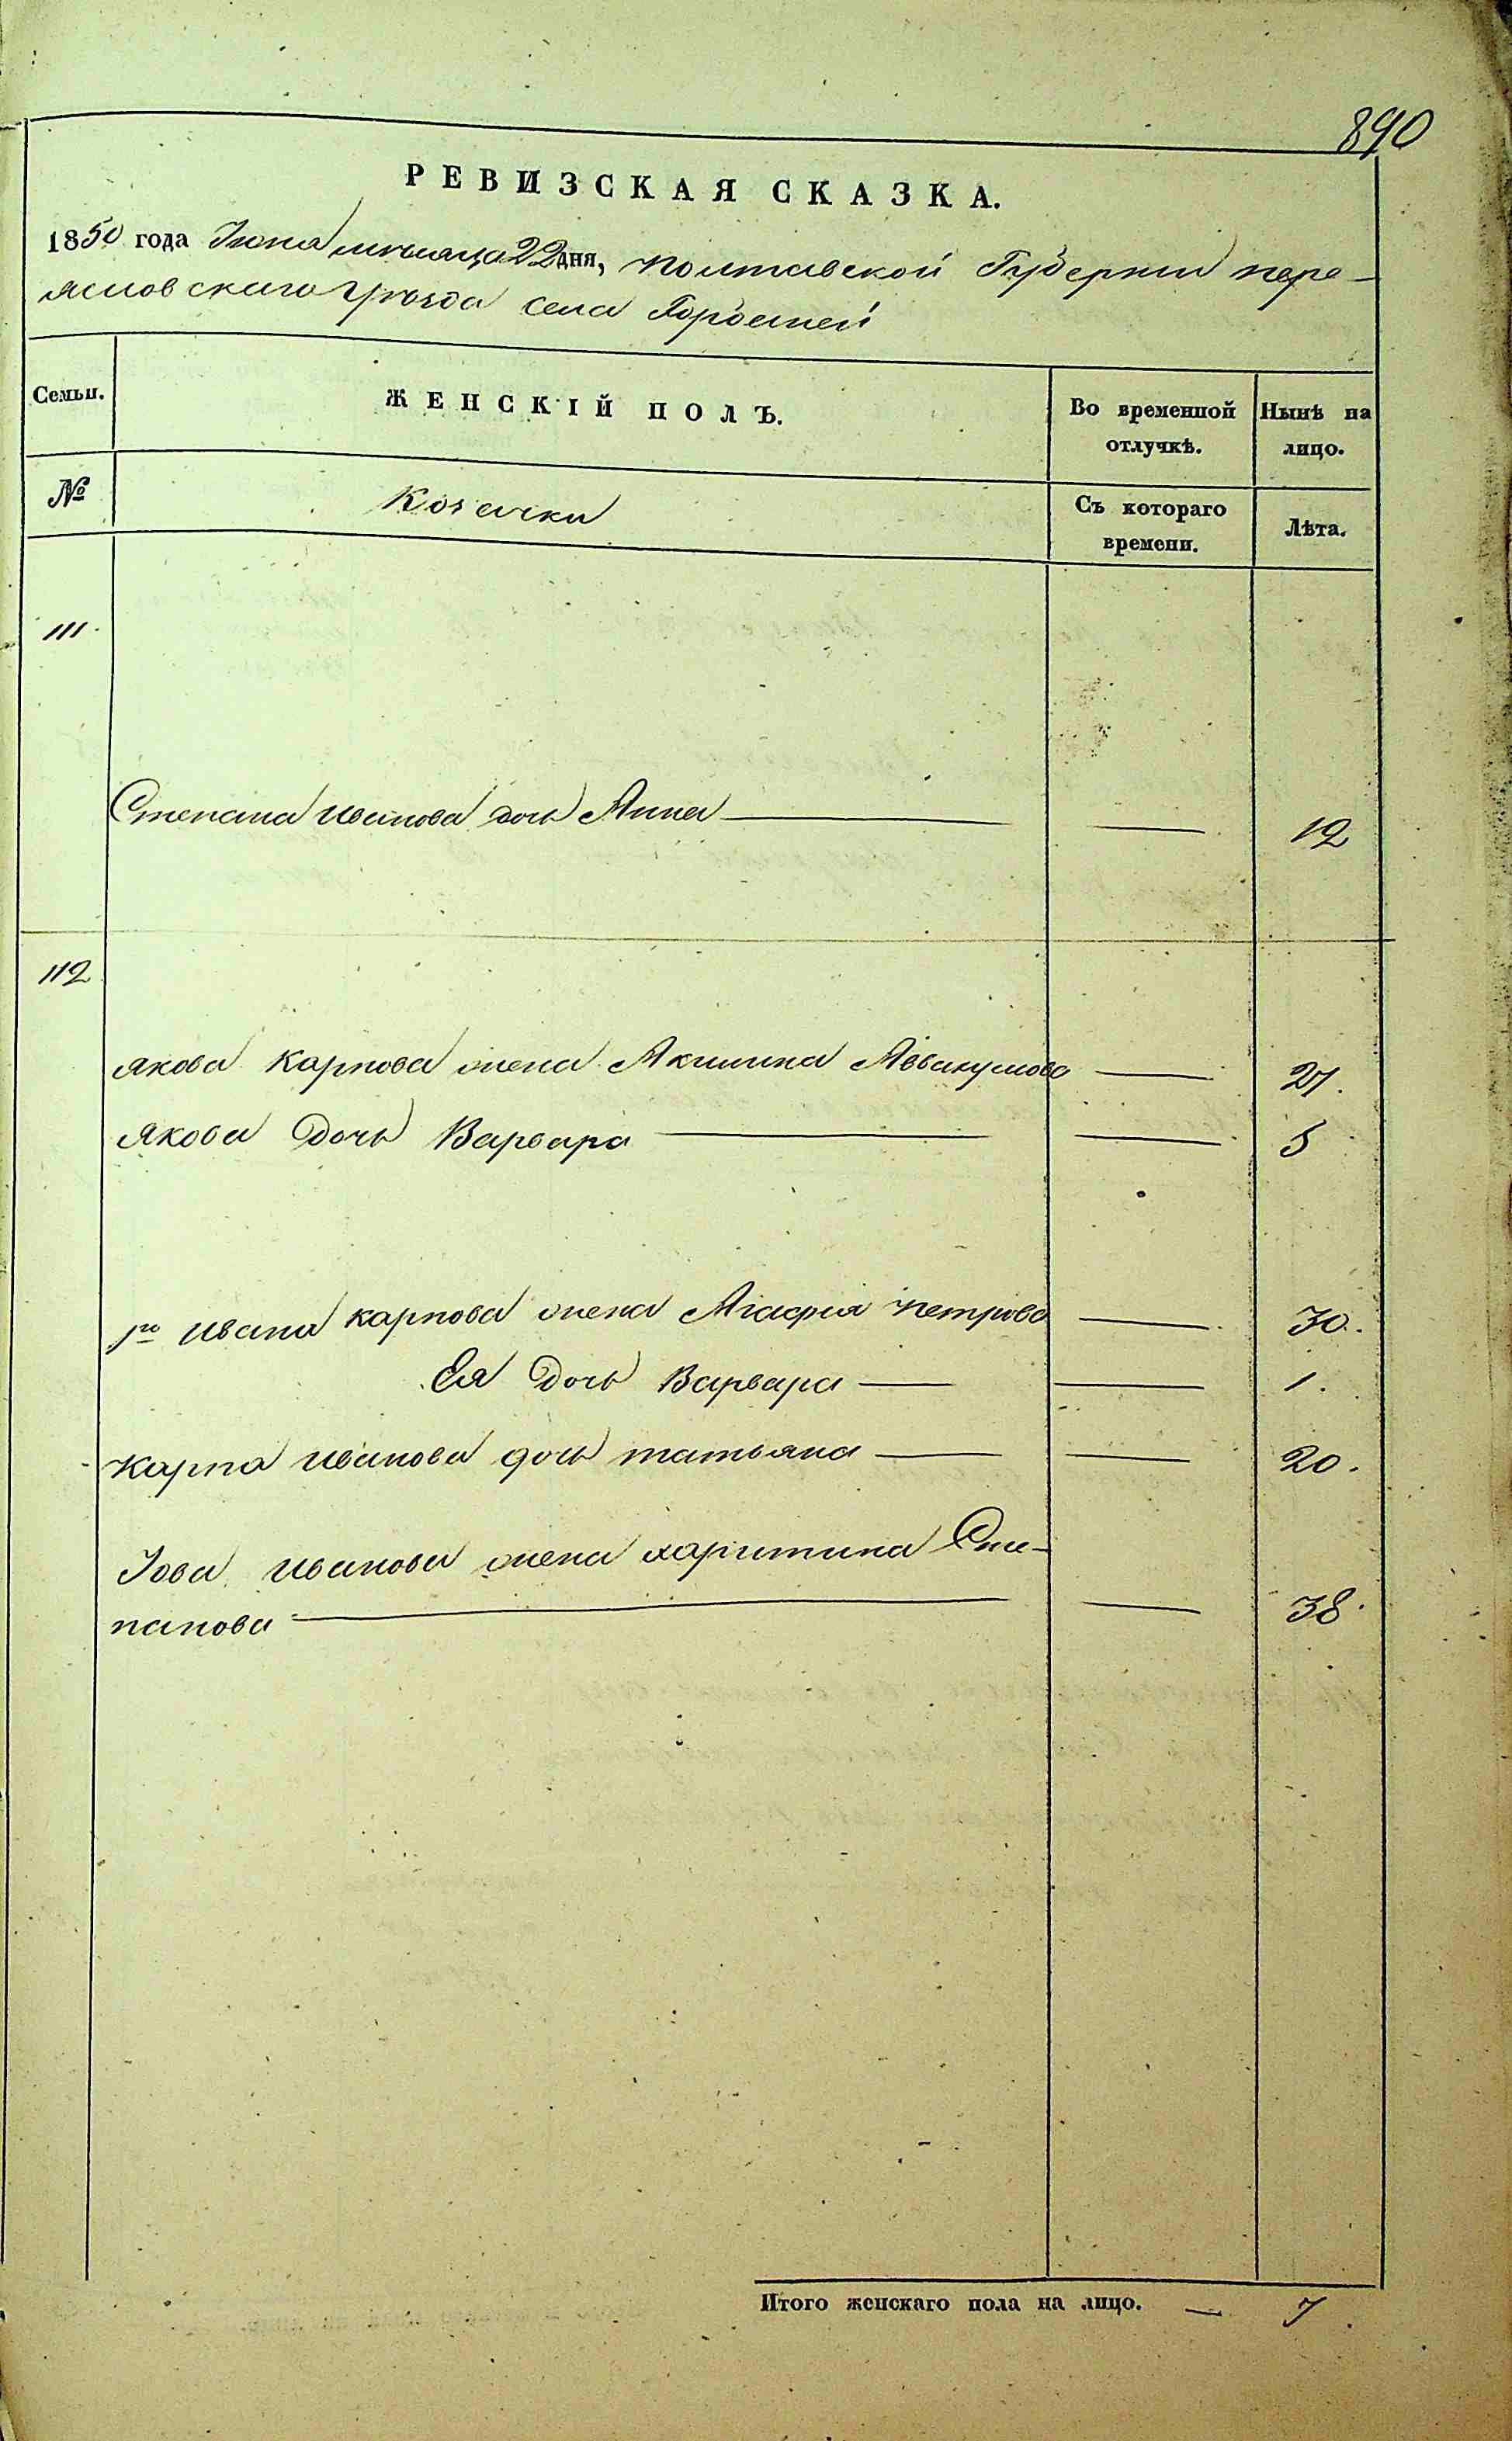 890
РЕВИЗСКАЯ СКАЗКА.
1850 года Іюня мѣсяца 22 дня, Полтавской Губерніи пере-
яславскаго Уѣзда села
Семьи. ЖЕНСКІЙ ПОЛЪ. Во временной отлучкѣ. Нынѣ на лицо.
№ Козачки Съ котораго времени. Лѣта.
111.
Степана Иванова дочь Анна — — 12
112
Якова Карпова жена Акилина Аввакумова — 27.
Якова Дочь Варвара — — 5
1го Ивана карпова жена Агафія петрова — 30.
Ея Дочь Варвара — — 1.
Карпа Иванова дочь татьяна — — 20.
Іова Иванова жена харитина Сте-
панова — — 38.
Итого женскаго пола на лицо. — 7.